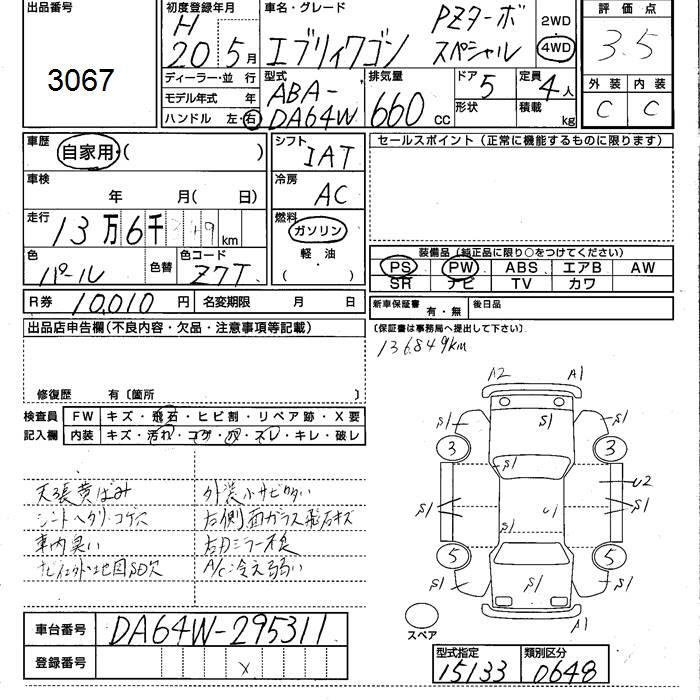 出品番号
3067
初度登録年月
H
20 5月
車名・グレード
エブリィワゴン
PZターボ
スペシャル
2WD
4WD
評価点
3.5
外装 内装
C C
ディーラー・並行
モデル年式 年
ハンドル 左・右
型式
ABA-
DA64W
排気量
660 cc
ドア 5
形状
定員 4人
積載 kg
車歴
自家用・( )
シフト
IAT
車検
年 月( 日)
冷房
AC
走行
13万6千 km
燃料
ガソリン
軽油
( )
色
パール
色替
色コード
Z7T
R券 10,010 円
名変期限 月 日
セールスポイント(正常に機能するものに限ります)
装備品(純正品に限り○をつけてください)
PS PW ABS エアB AW
SR ナビ TV カワ
新車保証書 有・無 後日品
(保証書は事務局へ提出して下さい)
136849km
出品店申告欄(不良内容・欠品・注意事項等記載)
修復歴 有〔箇所 〕
検査員
記入欄
FW キズ・飛石・ヒビ割・リペア跡・X要
内装 キズ・汚れ・コゲ・穴・スレ・キレ・破レ
天張黄ばみ
シートヘタリ・コゲ穴
車内臭い
外装小サビ多い
右側面ガラス飛石キズ
右ドミラー不良
A/C冷え弱い
A2 A1
S1 S1 S1
3 3
S1
U2
S1 U1 S1
S1
5 5
S1 S1 S1
A1
スペア
車台番号 DA64W-295311
登録番号 x
型式指定 類別区分
15133 0648